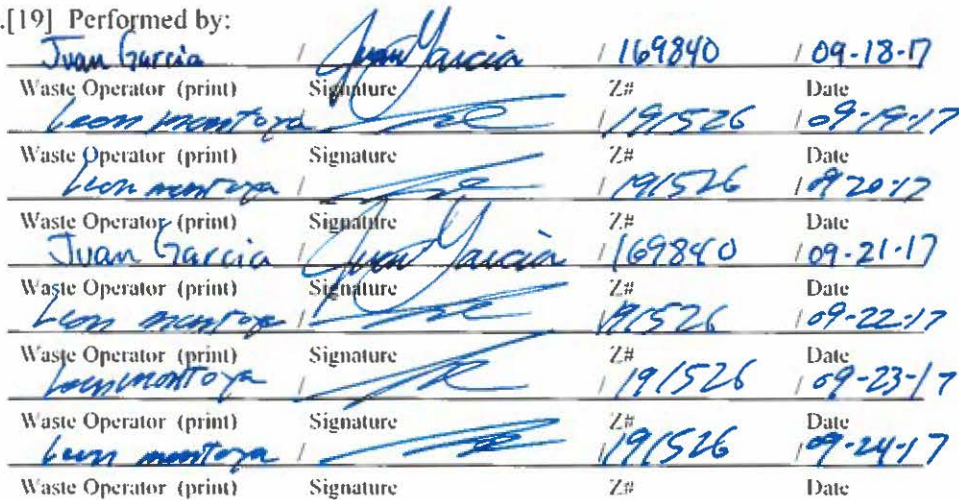 .[19] Performed by:
Juan Garcia / Juan Garcia / 169840 / 09-18-17
Waste Operator (print) Signature Z# Date
Leon montoya / 191526 / 09-19-17
Waste Operator (print) Signature Z# Date
Leon montoya / / 191526 / 09 20-17
Waste Operator (print) Signature Z# Date
Juan Garcia / Juan Garcia / 169840 / 09-21-17
Waste Operator (print) Signature Z# Date
Leon montoya / 191526 / 09-22-17
Waste Operator (print) Signature Z# Date
Leon montoya / / 191526 / 09-23-17
Waste Operator (print) Signature Z# Date
Leon montoya / 191526 / 09-24-17
Waste Operator (print) Signature Z# Date